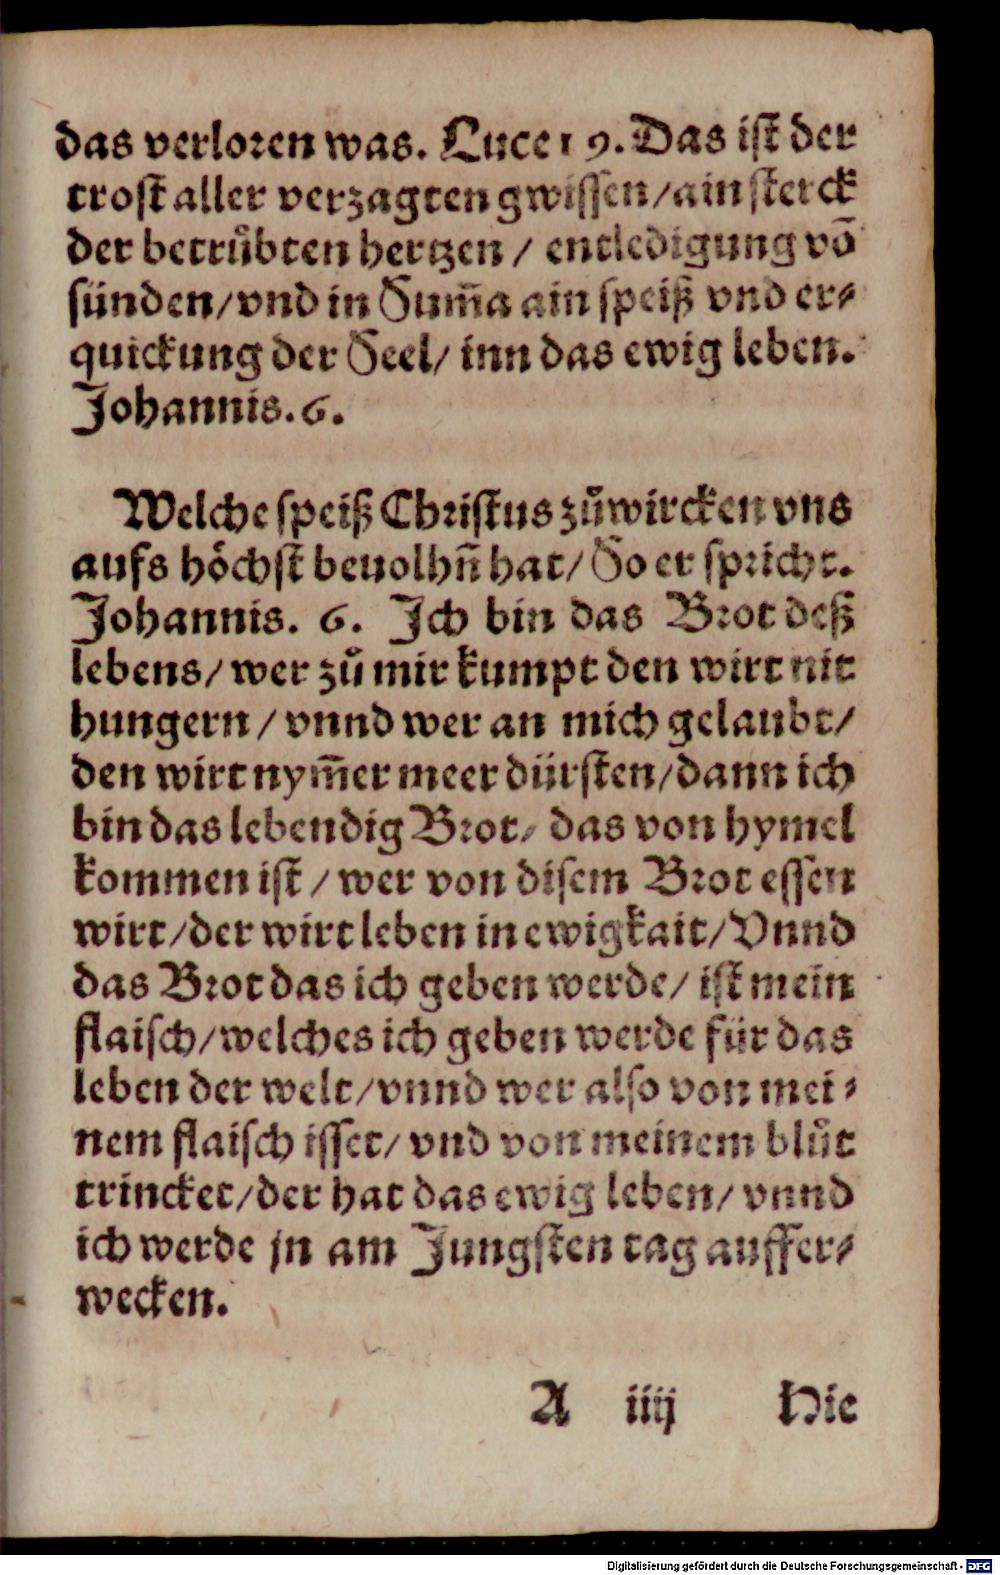 das verloren was. Luce 19. Das ist der
trost aller verzagten gwissen/ain sterck
der betrůbten hertzen / entledigung võ
sünden/vnd in Sum̃a ain speiß vnd er⸗
quickung der Seel/ inn das ewig leben.
Johannis. 6.
Welche speiß Christus zůwircken vns
aufs höchst beuolhñ hat/ So er spricht.
Johannis. 6. Ich bin das Brot deß
lebens/ wer zů mir kumpt den wirt nit
hungern / vnnd wer an mich gelaubt/
den wirt nym̃er meer dürsten/dann ich
bin das lebendig Brot/ das von hymel
kommen ist / wer von disem Brot essen
wirt/der wirt leben in ewigkait/Vnnd
das Brot das ich geben werde/ ist mein
flaisch/welches ich geben werde für das
leben der welt/vnnd wer also von mei⸗
nem flaisch isset/ vnd von meinem blůt
trincket/der hat das ewig leben/ vnnd
ich werde jn am Jungsten tag auffer⸗
wecken.
A iiij Hie
Digitalisierung gefördert durch die Deutsche Forschungsgemeinschaft - DFG